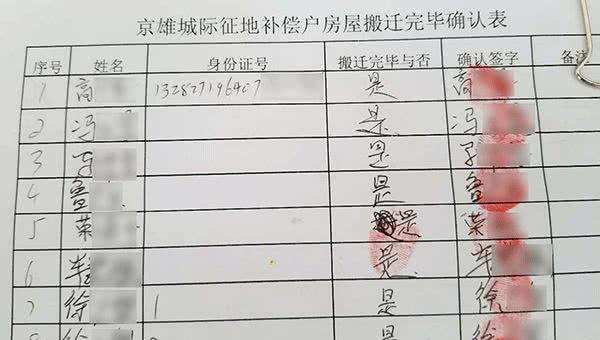 京雄城际征地补偿户房屋搬迁完毕确认表
序号 姓名 身份证号 搬迁完毕与否 确认签字 备注
1 高 132827196407 是 高
2 冯 是 冯
3 是
4 鲁 是 鲁
5 荣 是 荣
6 是
7 徐 1 是 徐
8 徐 是 徐